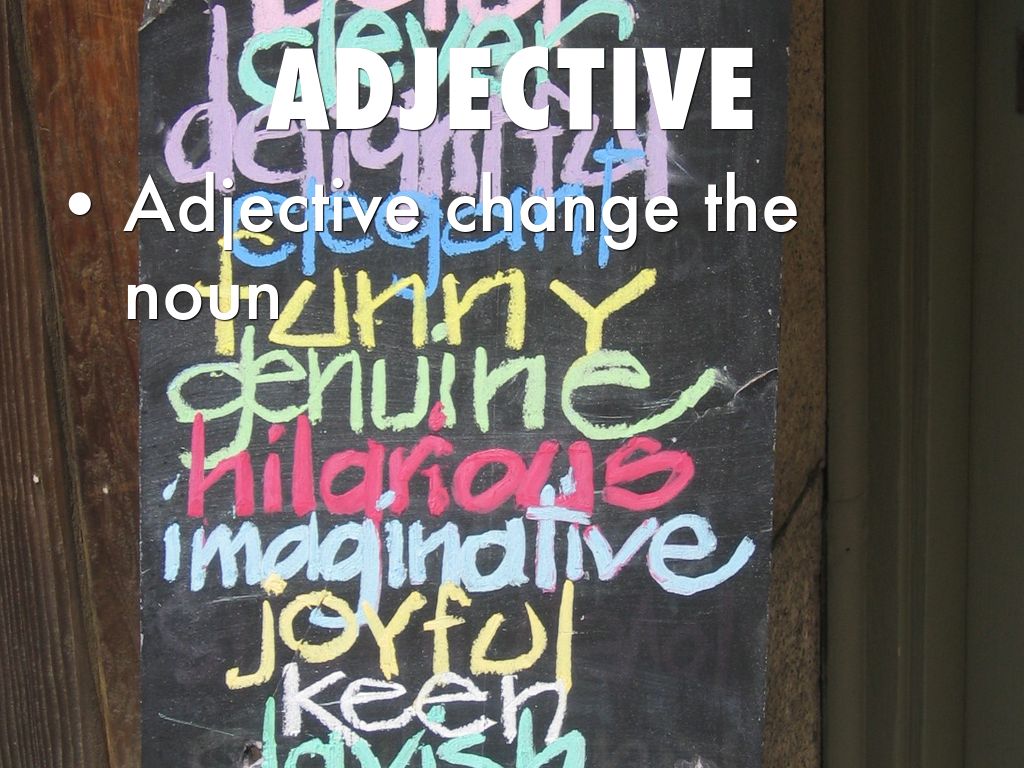 clever
ADJECTIVE
delightful
• Adjective change the
elegant
noun
funny
genuine
hilarious
imaginative
joyful
keen
lavish